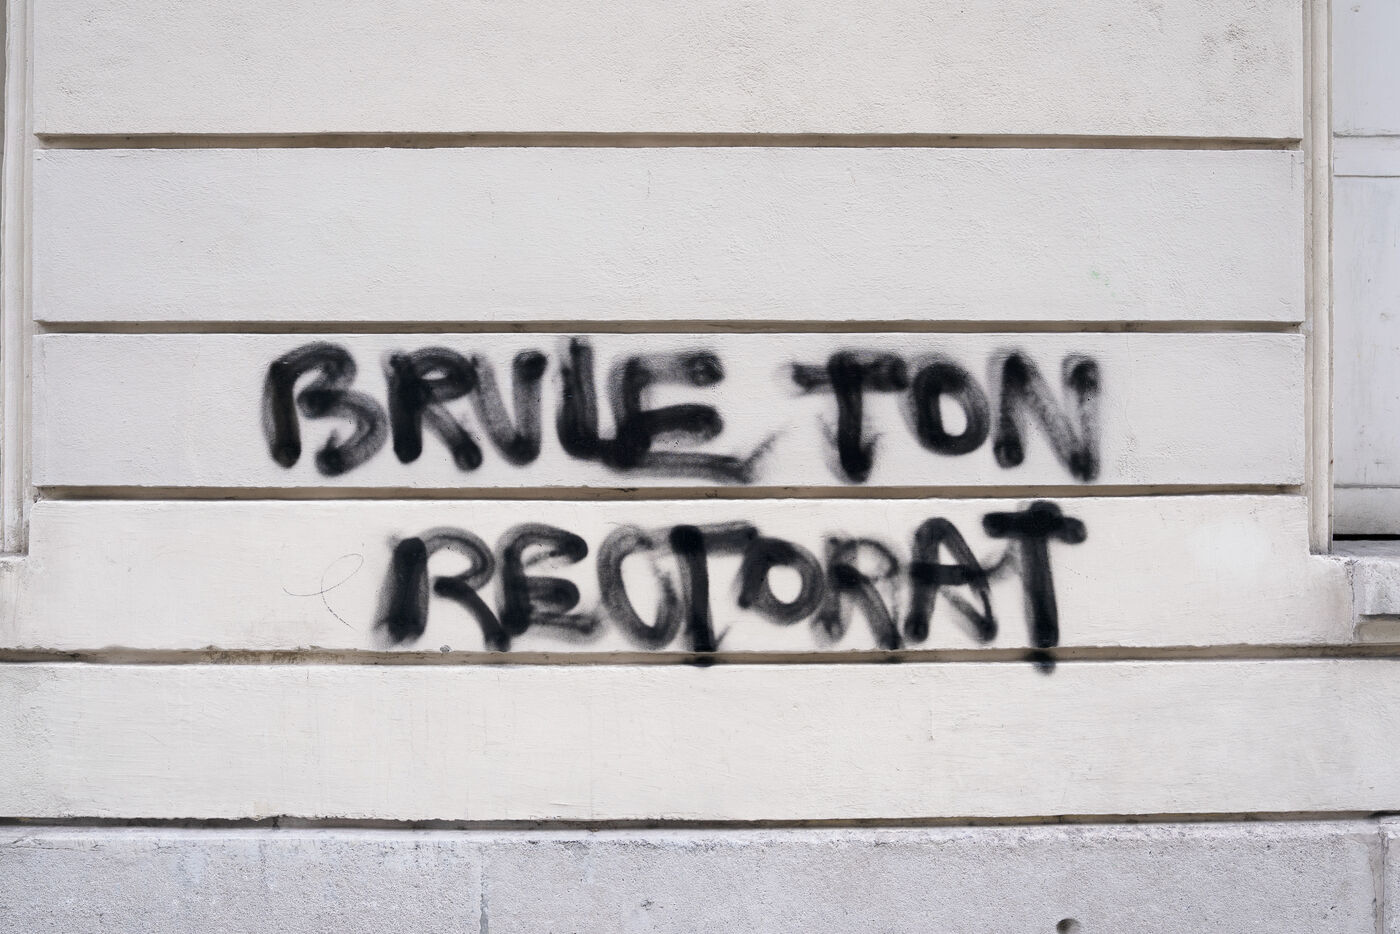 BRULE TON
RECTORAT